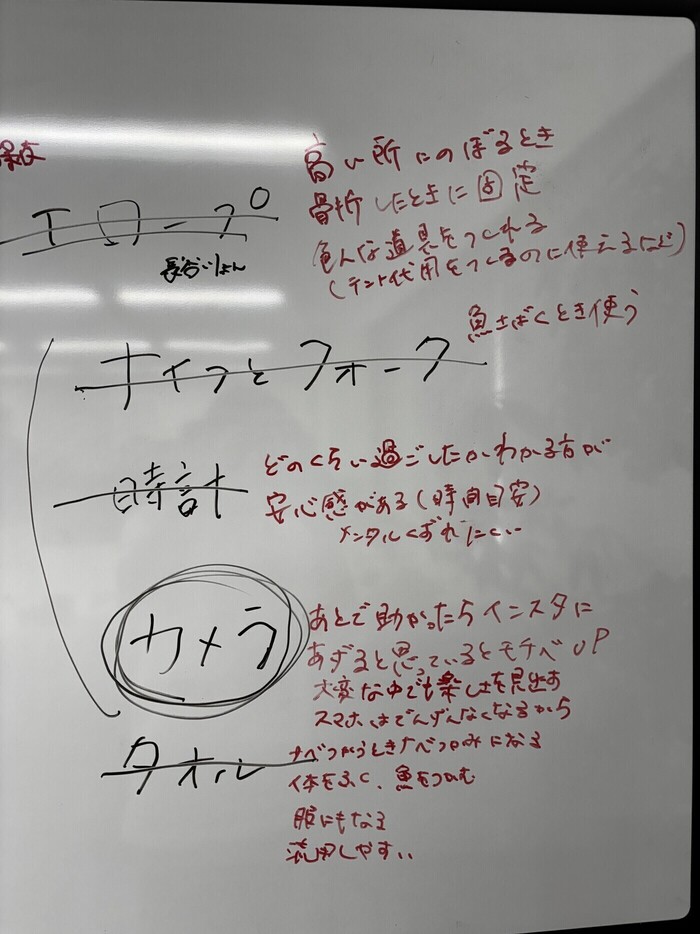 高い所にのぼるとき
骨折したときに固定
エロープ
色んな道具をつくれる
(テント代用をつくるのに使えるなど)
魚さばくとき使う
ナイフとフォーク
どのくらい過ごしたかわかる方が
時計
安心感がある(時間目安)
メンタルくずれにくい
あとで助かったらインスタに
カメラ
あげると思っているとモチベUP
大変な中でも楽しさを見出す
スマホはでんげんなくなるから
ナベつかうときナベつかみになる
タオル
体をふく、魚をつかむ
服にもなる
しやすい